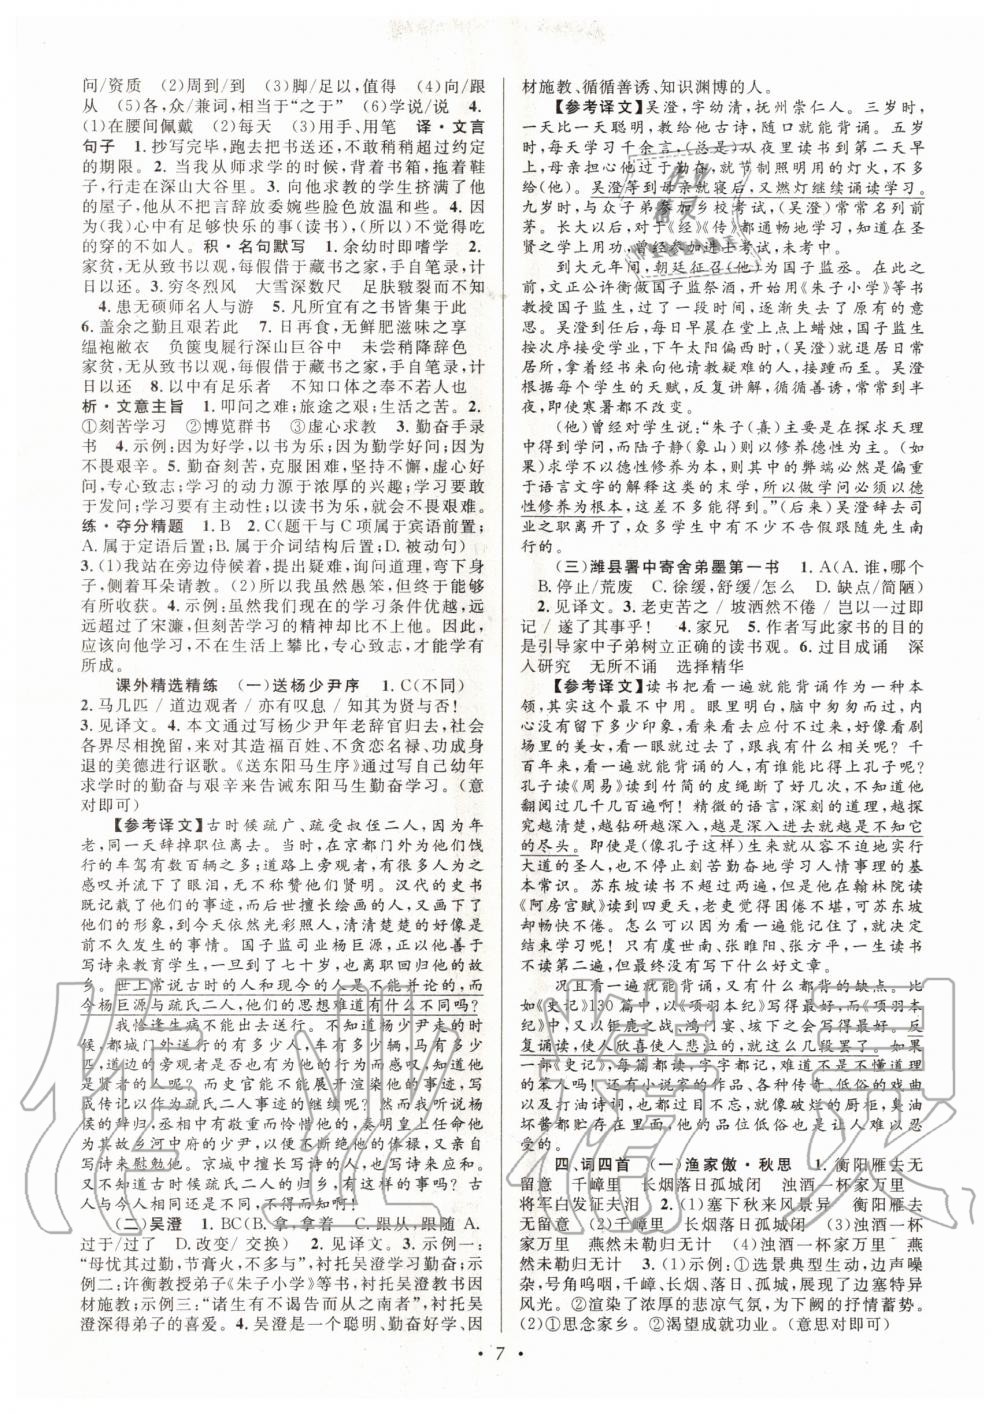 问/资质　(2)周到/到　(3)脚/足以,值得　(4)向/跟
从　(5)各,众/兼词,相当于“之于”　(6)学说/说　4.
(1)在腰间佩戴　(2)每天　(3)用手、用笔　译·文言
句子　1.抄写完毕,跑去把书送还,不敢稍稍超过约定
的期限。2.当我从师求学的时候,背着书箱,拖着鞋
子,行走在深山大谷里。3.向他求教的学生挤满了他
的屋子,他从不把言辞放委婉些脸色放温和些。4.
因为(我)心中有足够快乐的事(读书),(所以)不觉得吃
的穿的不如人。积·名句默写　1.余幼时即嗜学　2.
家贫,无从致书以观,每假借于藏书之家,手自笔录,计
日以还。3.穷冬烈风　大雪深数尺　足肤皲裂而不知
4.患无硕师名人与游　5.凡所宜有之书皆集于此
6.盖余之勤且艰若此　7.日再食,无鲜肥滋味之享
缊袍敝衣　负箧曳屣行深山巨谷中　未尝稍降辞色
家贫,无从致书以观,每假借于藏书之家,手自笔录,计
日以还　8.以中有足乐者　不知口体之奉不若人也
析·文意主旨　1.叩问之难;旅途之艰;生活之苦。2.
①刻苦学习　②博览群书　③虚心求教　3.勤奋手录
书　4.示例:因为好学,以书为乐;因为勤学好问;因为
不畏艰辛。5.勤奋刻苦,克服困难,坚持不懈,虚心好
问,专心致志;学习的动力源于浓厚的兴趣;学习要敢
于发问;以读书为乐,就会不畏艰难。
练·夺分精题　1.B　2.C(题干与C项属于宾语前置;
A.属于定语后置;B.属于介词结构后置;D.被动句)
3.(1)我站在旁边侍候着,提出疑难,询问道理,弯下身
子,侧着耳朵请教。(2)所以我虽然愚笨,但终于还是
有所收获。4.示例:虽然我们现在的学习条件优越,远
远超过了宋濂,但刻苦学习的精神却比不上他。因此,
应该向他学习,不在生活上攀比,专心致志,才能学有
所成。
课外精选精练　(一)送杨少尹序　1.C(不同)
2.马几匹 / 道边观者 / 亦有叹息 / 知其为贤与否!
3.见译文。4.本文通过写杨少尹年老辞官归去,社会
各界尽相挽留,来对其造福百姓、不贪恋名禄、功成身
退的美德进行讴歌。《送东阳马生序》通过写自己幼年
求学时的勤奋与艰辛来告诫东阳马生勤奋学习。(意
对即可)
【参考译文】古时候疏广、疏受叔侄二人,因为年
老,同一天辞掉职位离去。当时,在京都门外为他们饯
行的车驾有数百辆之多;道路上旁观者,有很多为此
感叹并流下了眼泪,无不赞叹他们贤明。汉代的史书
既记载了他们的事迹,而后世擅长绘画的人,又画下了
他们的形象,到今天依然光彩照人,清清楚楚的好像是
前不久发生的事情。国子监司业杨巨源,正以他善于
写诗来教育学生,一旦到了七十岁,也离职回归故
乡。世上常说古时的人和现今的人是不能并论的,而
今杨巨源与疏氏二人,他们的思想难道有什么不同吗?
我恰逢生病不能出去送行。不知道杨少尹走的时
候,都城门外送行的有多少人,车有多少辆,马有多少
匹,道边的旁观者是不是也有为之感叹知道他是贤者
的呢?而史官能不能展开渲染他的事迹,写
成传记以作为疏氏二人事迹的继续呢?然而我听说杨
侯的辞归,丞相中有感到惋惜并爱惜他的,奏明皇上任
他为故乡河中府的少尹,以便不断绝他的俸禄,又亲自
写诗勉励他。京城中擅长写诗的人,也作诗附和他。
又不知道古时候疏氏二人归去,有这样的事吗?
(二)吴澄　1.BC(B.拿,拿着　C.跟从,跟随 A.
过于/过了　D.改变/ 交换)　2.见译文。3.示例一:
“母忧其过勤,节膏火,不多与”,衬托吴澄学习勤奋;示
例二:许衡教授弟子《朱子小学》等书,衬托吴澄教书因
材施教;示例三:“诸生有不谒告而从之南者”,衬托吴
澄深得弟子的喜爱。4.吴澄是一个聪明、勤奋好学、因
材施教、循循善诱、知识渊博的人。
【参考译文】吴澄,字幼清,抚州崇仁人。三岁时,
一天比一天聪明,教给他古诗,随口就能背诵。五岁
时,每天学习千余言,(总是)从夜里读书到第二天早
上,母亲担心他过于勤奋,就节制照明用的灯火,不多
给(他)。吴澄等到母亲就寝后,又燃灯继续诵读学习。
九岁时,与众子弟参加乡校考试,(吴澄)常常名列前
茅。长大以后,对于《经》《传》都通畅地学习,知道在圣
贤之学上用功,曾经参加进士考试,未考中。
到大元年间,朝廷征召(他)为国子监丞。在此之
前,文正公许衡做国子监祭酒,开始以《朱子小学》等书
教授国子监生,过了一段时间,逐渐失去了原意。
吴澄到任后,每日早晨在堂上点上蜡烛,国子监生
按次序接受学业,下午太阳偏西时,(吴澄)就退居日常
居所,拿着经书来向他请教疑难的人,接连不断。吴澄
根据每个学生的天赋,反复讲解,循循善诱,常常到半
夜,即使寒暑都不改变。
(他)曾经对学生说:“朱子(熹)主要是在探求天理
中得到学问,而陆子静(象山)则以修养德性为主。(如
果)求学问不以德性修养为本,则其中的弊端必然会偏重
于语言文字的解释这类的末学,所以做学问必须以德
性修养为根本,这差不多能得到。”(后来)吴澄辞去司
业之职离开了,众多学生中有不少不告假跟随先生南
行的。
(三)潍县署中寄舍弟墨第一书　1.A(A.谁,哪个
B.停止/荒废　C.徐缓,舒缓/怎么　D.缺点/简陋)
2.见译文。3.老吏苦之 / 坡洒然不倦 / 岂以一过即
记 / 遂了其事乎!　4.家兄　5.作者写此家书的目的
是引导家中子弟树立正确的读书观。6.过目成诵　深
入研究　无所不诵　选择精华
【参考译文】读书把看一遍就能背诵作为一种本
领,其实这个最不中用。眼里明白,脑中匆匆而过,内
心没有留下多少印象,看来看去应付不过来,好像看剧
场里的美女,看一眼就过去了,与我有什么相干呢?千
百年来,看一遍就能背诵的,有谁能比得上孔子呢?
孔子读《周易》读到使串竹简的皮绳断了好几次,不知道他
翻阅过几千几百遍了!精微的语言,深刻的道理,越探
究越清楚,越钻研越深入,越是深入进去就越是不知它
的尽头。即使是(像孔子这样)生来就从容不迫地实行
大道的圣人,也不停止刻苦勤奋地学习人情事理的基
本常识。苏东坡读书不超过两遍,但是他在翰林院读
《阿房宫赋》读到四更天,老吏觉得困倦不堪,可苏东坡
却畅快不倦。怎么可以因为看一遍能记住了,就决定
结束学习呢!只有虞世南、张睢阳、张方平,一生读书
不读第二遍,但最终没有写下什么好文章。
况且看一遍就能背诵,又有都背诵的缺点。比
如《史记》130篇中,以《项羽本纪》写得最好,而《项羽本
纪》中,又以钜鹿之战、鸿门宴、垓下之会写得最好。反
复诵读,使人欣喜使人悲泣的,就这么几段罢了。如果
一部《史记》,每篇都读,字字都记,难道不是不懂道理
的笨人吗!还有小说家的作品、各种传奇、低俗的戏曲
以及打油诗词,也都过目不忘,就像破烂的厨柜,臭油
坏酱都贮存在里面,他的品位低俗也是让人难以忍
受的!
四、词四首　(一)渔家傲·秋思　1.衡阳雁去无
留意　千嶂里　长烟落日孤城闭　浊酒一杯家万里
将军白发征夫泪　2.(1)塞下秋来风景异　衡阳雁去
无留意　(2)千嶂里　长烟落日孤城闭　(3)浊酒一杯
家万里　燕然未勒归无计　(4)浊酒一杯家万里　燕
然未勒归无计　3.(1)示例:①选景典型生动,边声嘈
杂,号角呜咽,千嶂、长烟、落日、孤城,展现了边塞特异
风光。②渲染了浓厚的悲凉气氛,为下阕的抒情蓄势。
(2)①思念家乡。②渴望成就功业。(意思对即可)
· 7 ·
作业精灵